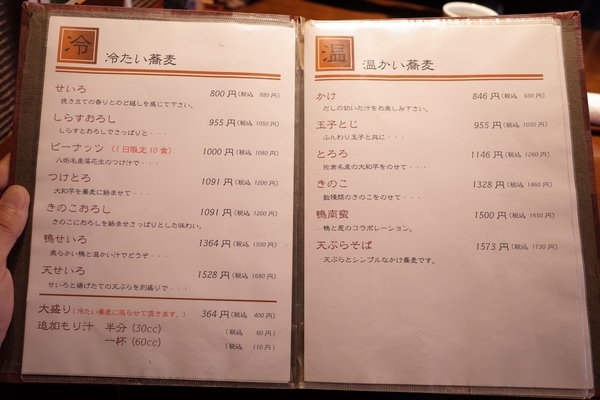 冷 冷たい蕎麦
せいろ 800円(税込 880円)
挽き立ての香りとのど越しを感じて下さい。
しらすおろし 955円(税込 1050円)
しらすとおろしでさっぱりと・・・
ピーナッツ (1日限定10食) 1000円(税込 1080円)
八街名産落花生のつけ汁で・・・
つけとろ 1091円(税込 1200円)
大和芋を蕎麦に絡ませて・・・
きのこおろし 1091円(税込 1200円)
きのこにおろしを絡ませさっぱりとした味わい。
鴨せいろ 1364円(税込 1500円)
柔らかい鴨と温かい汁でどうぞ・・・
天せいろ 1528円(税込 1680円)
せいろと揚げたての天ぷらを別盛りで・・・
大盛り(冷たい蕎麦に限らせて頂きます。) 364円(税込 400円)
追加もり汁 半分 (30cc) (税込 60円)
一杯 (60cc) (税込 110円)
温 温かい蕎麦
かけ 846円(税込 930円)
だしの効いた汁をお楽しみ下さい。
玉子とじ 955円(税込 1050円)
ふんわり玉子と共に・・・
とろろ 1146円(税込 1260円)
佐倉名産の大和芋をのせて・・・
きのこ 1328円(税込 1460円)
数種類のきのこをのせて・・・
鴨南蛮 1500円(税込 1650円)
鴨と葱のコラボレーション。
天ぷらそば 1573円(税込 1730円)
天ぷらとシンプルなかけ蕎麦です。